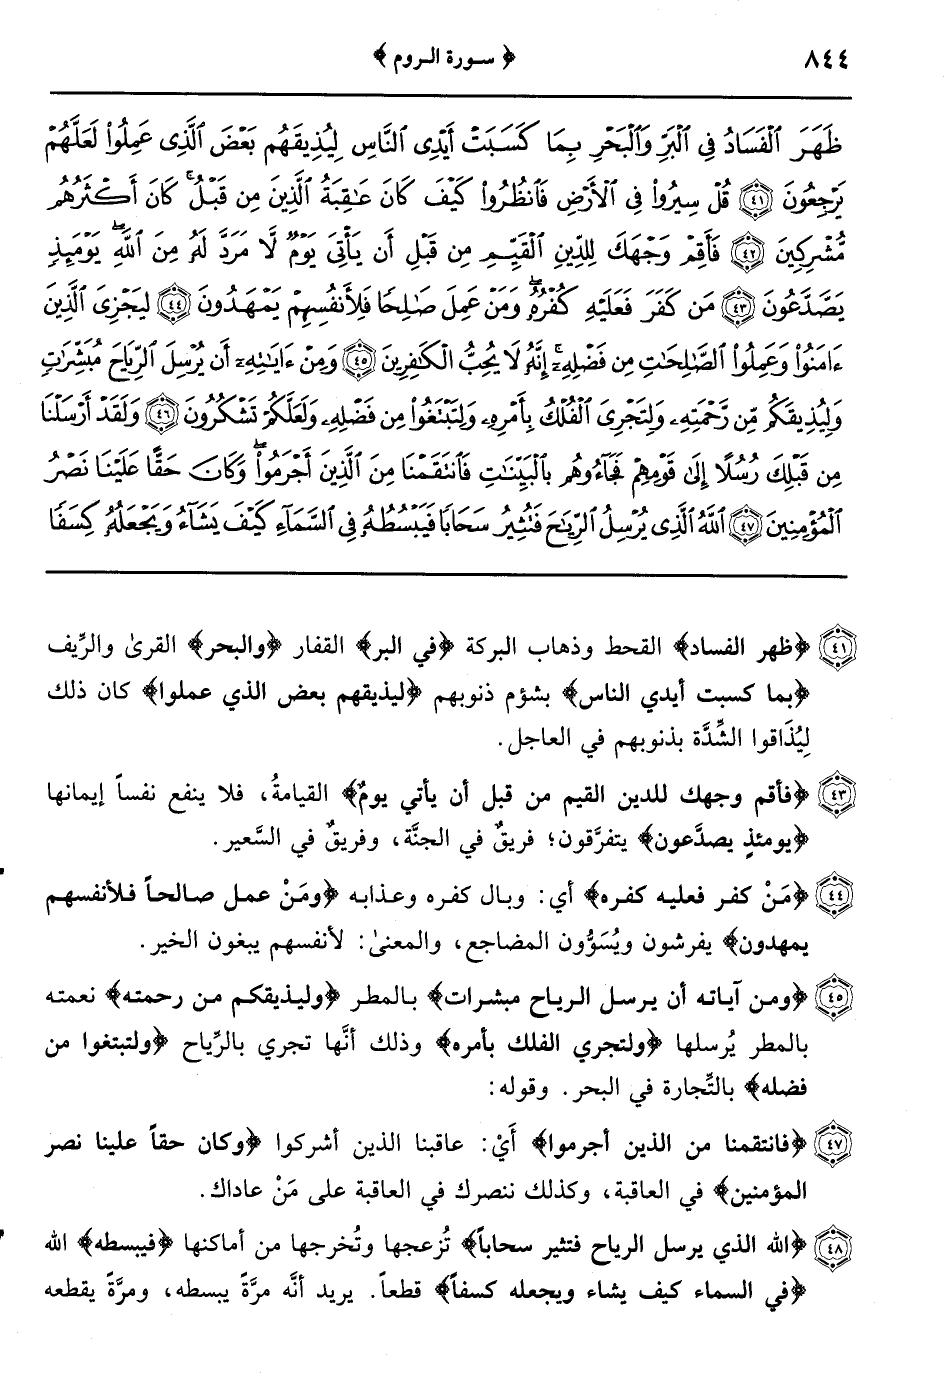 ٨٤٤ ﴿ سورة الروم ﴾
ظَهَرَ ٱلْفَسَادُ فِى ٱلْبَرِّ وَٱلْبَحْرِ بِمَا كَسَبَتْ أَيْدِى ٱلنَّاسِ لِيُذِيقَهُم بَعْضَ ٱلَّذِى عَمِلُوا۟ لَعَلَّهُمْ
يَرْجِعُونَ ﴿٤١﴾ قُلْ سِيرُوا۟ فِى ٱلْأَرْضِ فَٱنظُرُوا۟ كَيْفَ كَانَ عَـٰقِبَةُ ٱلَّذِينَ مِن قَبْلُ ۚ كَانَ أَكْثَرُهُم
مُّشْرِكِينَ ﴿٤٢﴾ فَأَقِمْ وَجْهَكَ لِلدِّينِ ٱلْقَيِّمِ مِن قَبْلِ أَن يَأْتِىَ يَوْمٌ لَّا مَرَدَّ لَهُۥ مِنَ ٱللَّهِ ۖ يَوْمَئِذٍ
يَصَّدَّعُونَ ﴿٤٣﴾ مَن كَفَرَ فَعَلَيْهِ كُفْرُهُۥ ۖ وَمَنْ عَمِلَ صَـٰلِحًا فَلِأَنفُسِهِمْ يَمْهَدُونَ ﴿٤٤﴾ لِيَجْزِىَ ٱلَّذِينَ
ءَامَنُوا۟ وَعَمِلُوا۟ ٱلصَّـٰلِحَـٰتِ مِن فَضْلِهِۦٓ ۚ إِنَّهُۥ لَا يُحِبُّ ٱلْكَـٰفِرِينَ ﴿٤٥﴾ وَمِنْ ءَايَـٰتِهِۦٓ أَن يُرْسِلَ ٱلرِّيَاحَ مُبَشِّرَٰتٍ
وَلِيُذِيقَكُم مِّن رَّحْمَتِهِۦ وَلِتَجْرِىَ ٱلْفُلْكُ بِأَمْرِهِۦ وَلِتَبْتَغُوا۟ مِن فَضْلِهِۦ وَلَعَلَّكُمْ تَشْكُرُونَ ﴿٤٦﴾ وَلَقَدْ أَرْسَلْنَا
مِن قَبْلِكَ رُسُلًا إِلَىٰ قَوْمِهِمْ فَجَآءُوهُم بِٱلْبَيِّنَـٰتِ فَٱنتَقَمْنَا مِنَ ٱلَّذِينَ أَجْرَمُوا۟ ۖ وَكَانَ حَقًّا عَلَيْنَا نَصْرُ
ٱلْمُؤْمِنِينَ ﴿٤٧﴾ ٱللَّهُ ٱلَّذِى يُرْسِلُ ٱلرِّيَـٰحَ فَتُثِيرُ سَحَابًا فَيَبْسُطُهُۥ فِى ٱلسَّمَآءِ كَيْفَ يَشَآءُ وَيَجْعَلُهُۥ كِسَفًا
﴿٤١﴾ ﴿ظهر الفساد﴾ القحط وذهاب البركة ﴿في البر﴾ القفار ﴿والبحر﴾ القرىٰ والرِّيف
﴿بما كسبت أيدي الناس﴾ بشؤم ذنوبهم ﴿ليذيقهم بعض الذي عملوا﴾ كان ذلك
لِيُذَاقوا الشِّدَّة بذنوبهم في العاجل.
﴿٤٣﴾ ﴿فأقم وجهك للدين القيم من قبل أن يأتي يومٌ﴾ القيامةُ، فلا ينفع نفساً إيمانها
﴿يومئذٍ يصدَّعون﴾ يتفرَّقون؛ فريقٌ في الجنَّة، وفريقٌ في السَّعير.
﴿٤٤﴾ ﴿مَنْ كفر فعليه كفره﴾ أي: وبال كفره وعذابه ﴿ومَنْ عمل صالحاً فلأنفسهم
يمهدون﴾ يفرشون ويُسَوُّون المضاجع، والمعنىٰ: لأنفسهم يبغون الخير.
﴿٤٥﴾ ﴿ومن آياته أن يرسل الرياح مبشرات﴾ بالمطر ﴿وليذيقكم من رحمته﴾ نعمته
بالمطر يُرسلها ﴿ولتجري الفلك بأمره﴾ وذلك أنَّها تجري بالرِّياح ﴿ولتبتغوا من
فضله﴾ بالتِّجارة في البحر. وقوله:
﴿٤٧﴾ ﴿فانتقمنا من الذين أجرموا﴾ أَيْ: عاقبنا الذين أشركوا ﴿وكان حقاً علينا نصر
المؤمنين﴾ في العاقبة، وكذلك ننصرك في العاقبة على مَنْ عاداك.
﴿٤٨﴾ ﴿الله الذي يرسل الرياح فتثير سحاباً﴾ تُزعجها وتُخرجها من أماكنها ﴿فيبسطه﴾ الله
﴿في السماء كيف يشاء ويجعله كسفاً﴾ قطعاً. يريد أنَّه مرَّةً يبسطه، ومرَّةً يقطعه